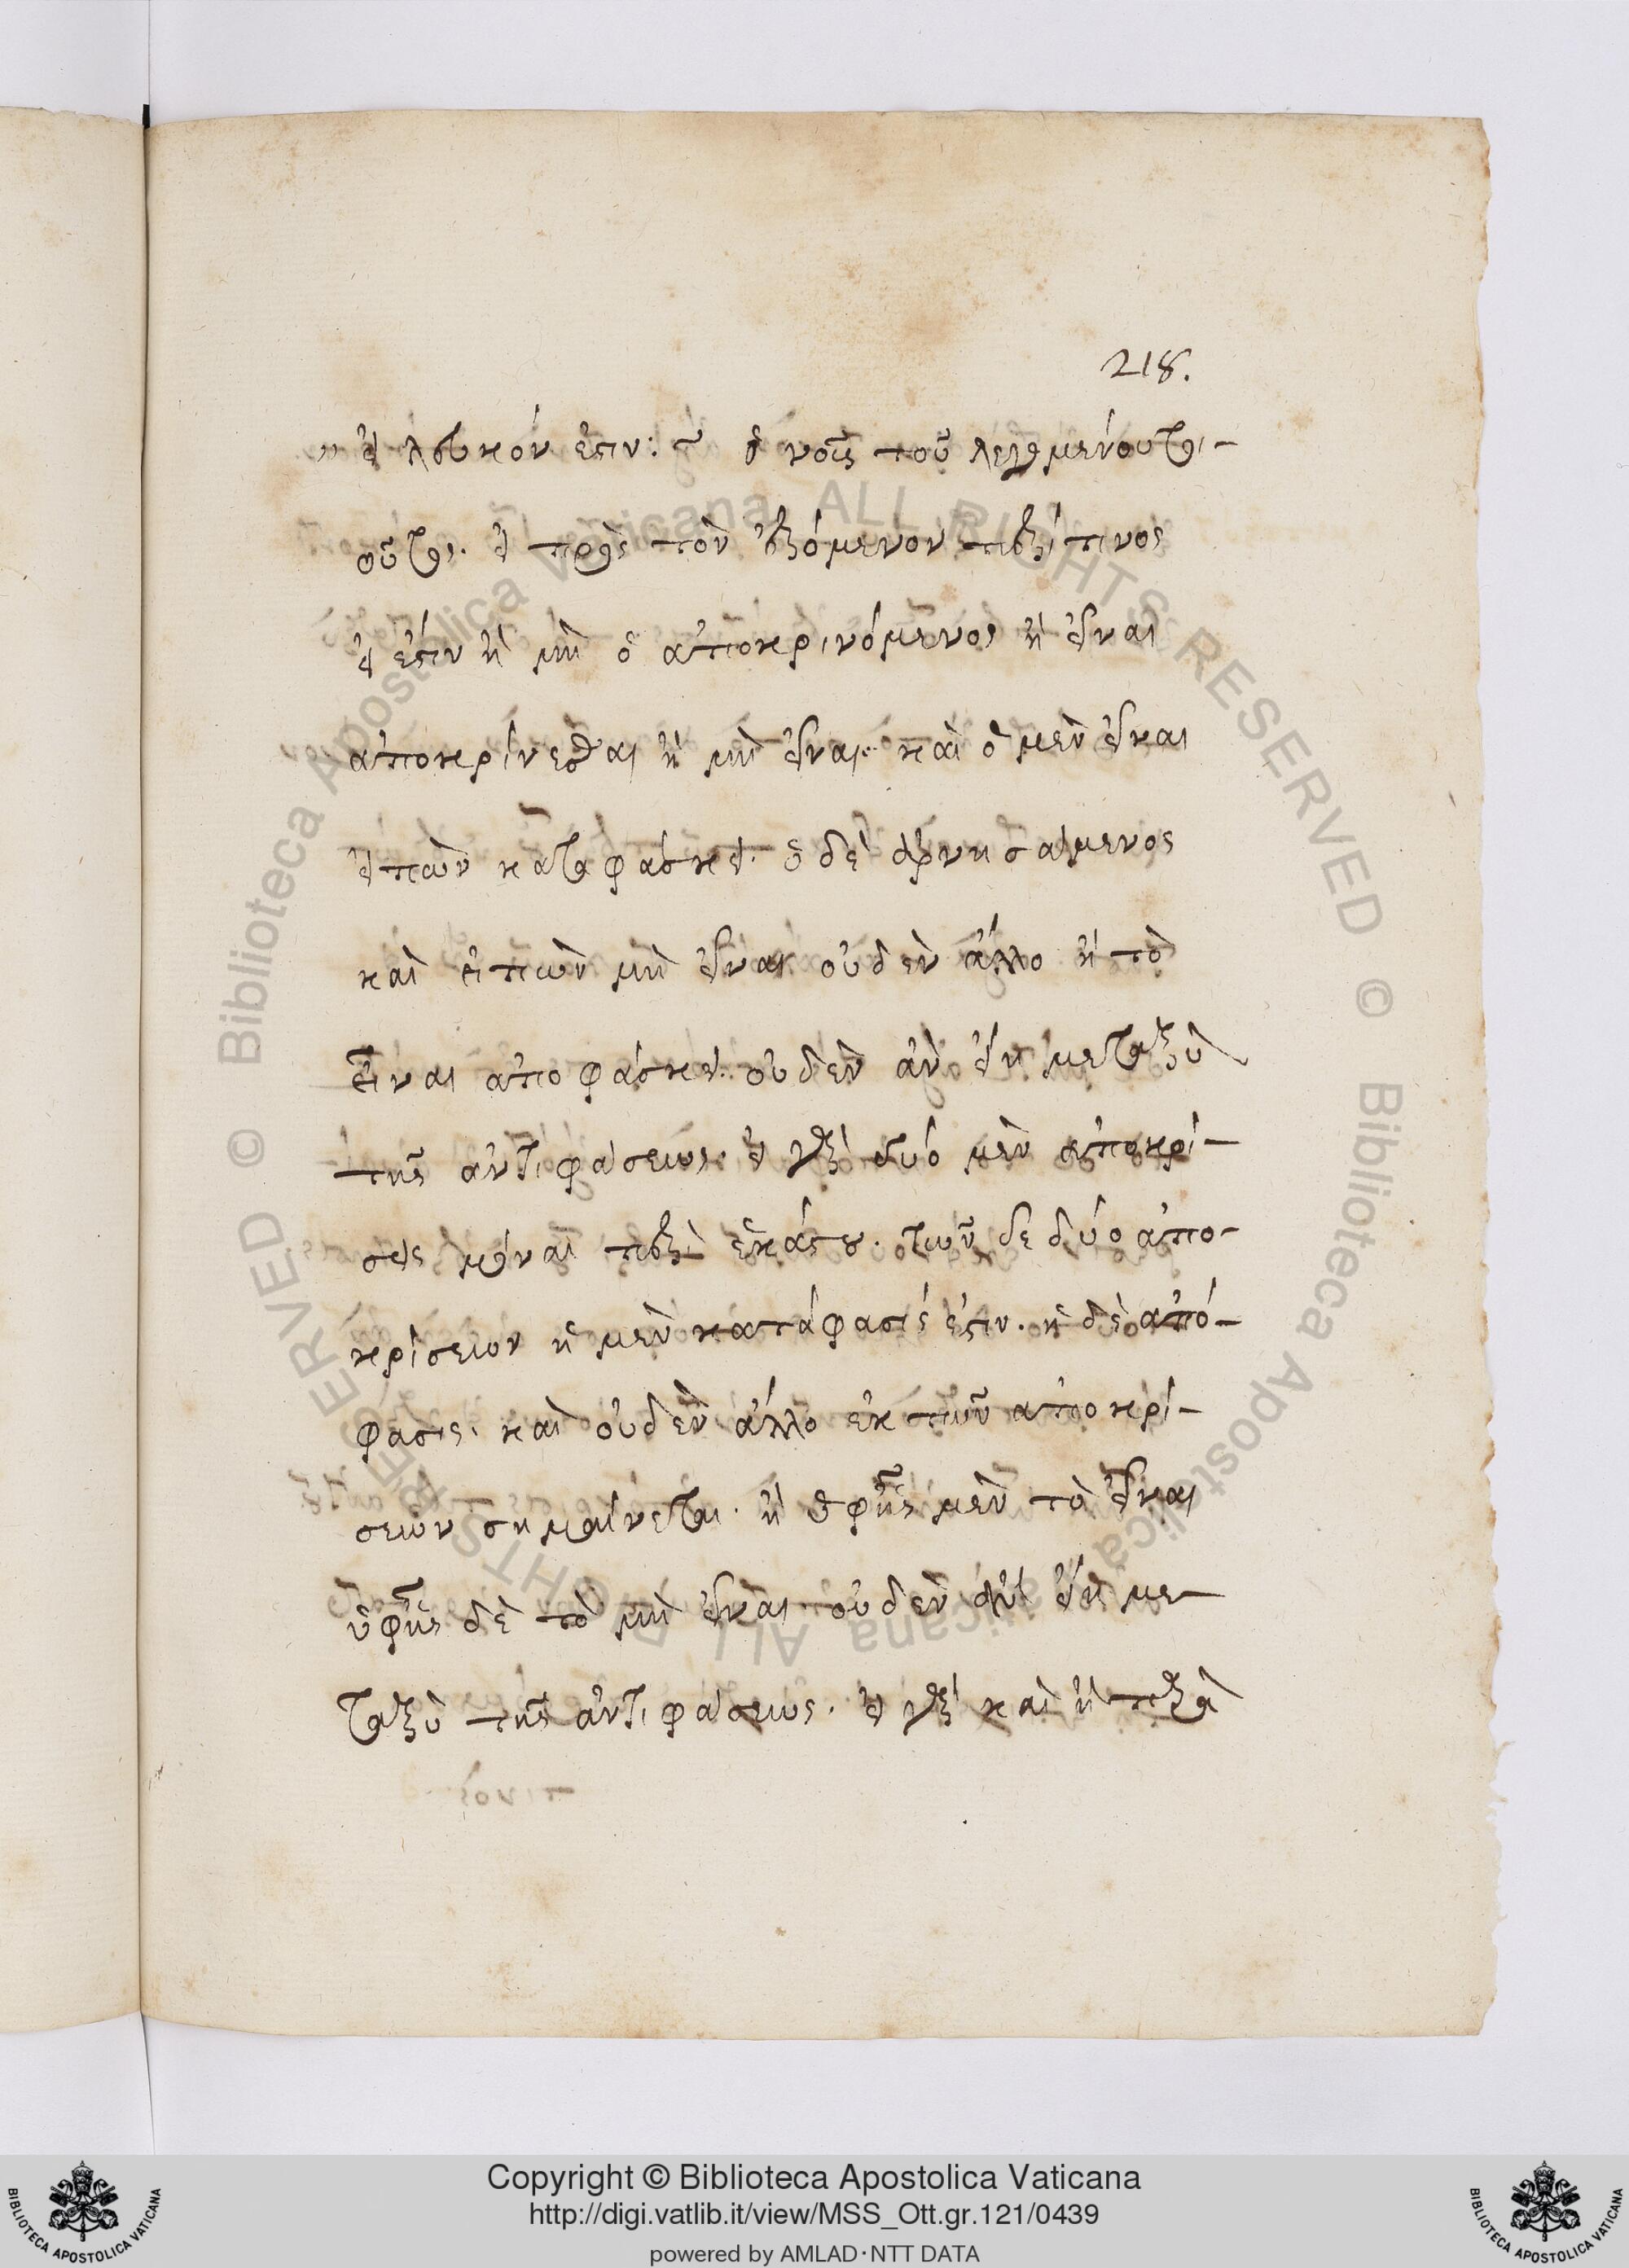 218.
„ εἰ λευκόν ἐστιν: ~ ὁ νοῦς τοῦ λεγομένου τοι-
οῦτος. εἰ πρὸς τὸν ἐρόμενον περί τινος
εἰ ἔστιν ἢ μὴ ὁ ἀποκρινόμενος ἢ εἶναι
ἀποκρίνεσθαι ἢ μὴ εἶναι. καὶ ὁ μὲν εἶναι
εἰπὼν καταφάσκει. ὁ δὲ ἀρνησάμενος
καὶ εἰπὼν μὴ εἶναι οὐδὲν ἄλλο ἢ τὸ
εἶναι ἀποφάσκει. οὐδὲν ἂν εἴη μεταξὺ
τῆς ἀντιφάσεως. εἰ γὰρ δύο μὲν ἀποκρί-
σεις μόναι περὶ ἑκάστου. τῶν δὲ δύο ἀπο-
κρίσεων ἡ μὲν κατάφασίς ἐστιν. ἡ δὲ ἀπό-
φασις. καὶ οὐδὲν ἄλλο ἐκ τῶν ἀποκρί-
σεων σημαίνεται. ἢ ἐφ' ἧς μὲν τὸ εἶναι
ἐφ' ἧς δὲ τὸ μὴ εἶναι οὐδὲν ἂν εἴη με-
ταξὺ τῆς ἀντιφάσεως. εἰ γὰρ καὶ ἢ παρά
Copyright © Biblioteca Apostolica Vaticana
http://digi.vatlib.it/view/MSS_Ott.gr.121/0439
powered by AMLAD·NTT DATA
BIBLIOTECA APOSTOLICA VATICANA
BIBLIOTECA APOSTOLICA VATICANA
© Biblioteca Apostolica Vaticana ALL RIGHTS RESERVED © Biblioteca Apostolica Vaticana ALL RIGHTS RESERVED